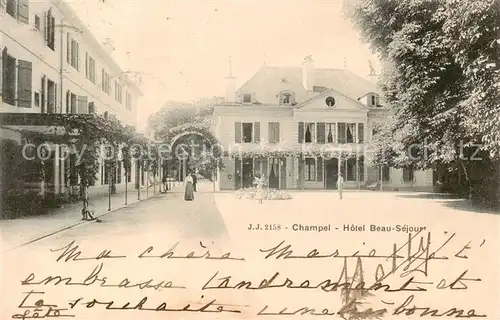 J.J. 2158 - Champel - Hôtel Beau-Séjour
Ma chère Marie je t'
embrasse tendrement et
te souhaite une bonne
fête